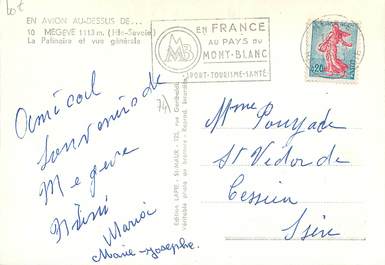 lot
EN AVION AU-DESSUS DE...
10 MEGÈVE 1113 m. (Hte-Savoie)
La Patinoire et vue générale
MMB
EN FRANCE
AU PAYS DU
MONT-BLANC
SPORT-TOURISME-SANTÉ
0,20
Amical
Souvenir de
Megeve
Mimi
Maria
Marie-Josephe.
Edition LAPIE - St-MAUR
Mme Pouyade
St Victor de
Cessieu
Isère